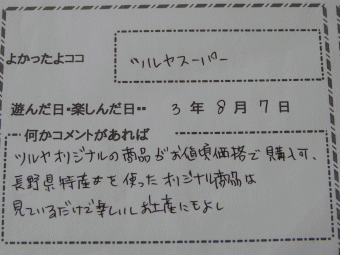 よかったよココ
ツルヤスーパー
遊んだ日・楽しんだ日・・ 3 年 8 月 7 日
何かコメントがあれば
ツルヤオリジナルの商品がお値頃価格で購入可、
長野県特産を使ったオリジナル商品は
見ているだけで楽しいしお土産にもよし